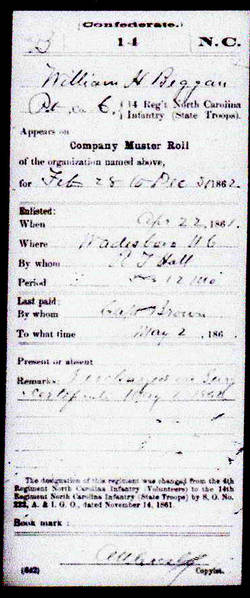 (Confederate.)
B 14 N.C.
William H Beggan
Pvt Co C, 14 Reg't North Carolina
Infantry (State Troops).
Appears on
Company Muster Roll
of the organization named above,
for Feb 28 to Dec 31, 1862.
Enlisted:
When Apr 22, 1861.
Where Wadesboro N C
By whom Hall
Period 12 mo
Last paid:
By whom Capt Brown
To what time May 2, 186
Present or absent
Remarks: Discharged on Surg
certificate May
The designation of this regiment was changed from the 4th
Regiment North Carolina Infantry (Volunteers) to the 14th
Regiment North Carolina Infantry (State Troops) by S. O. No.
222, A. & I. G. O., dated November 14, 1861.
Book mark:
(642) Copyist.